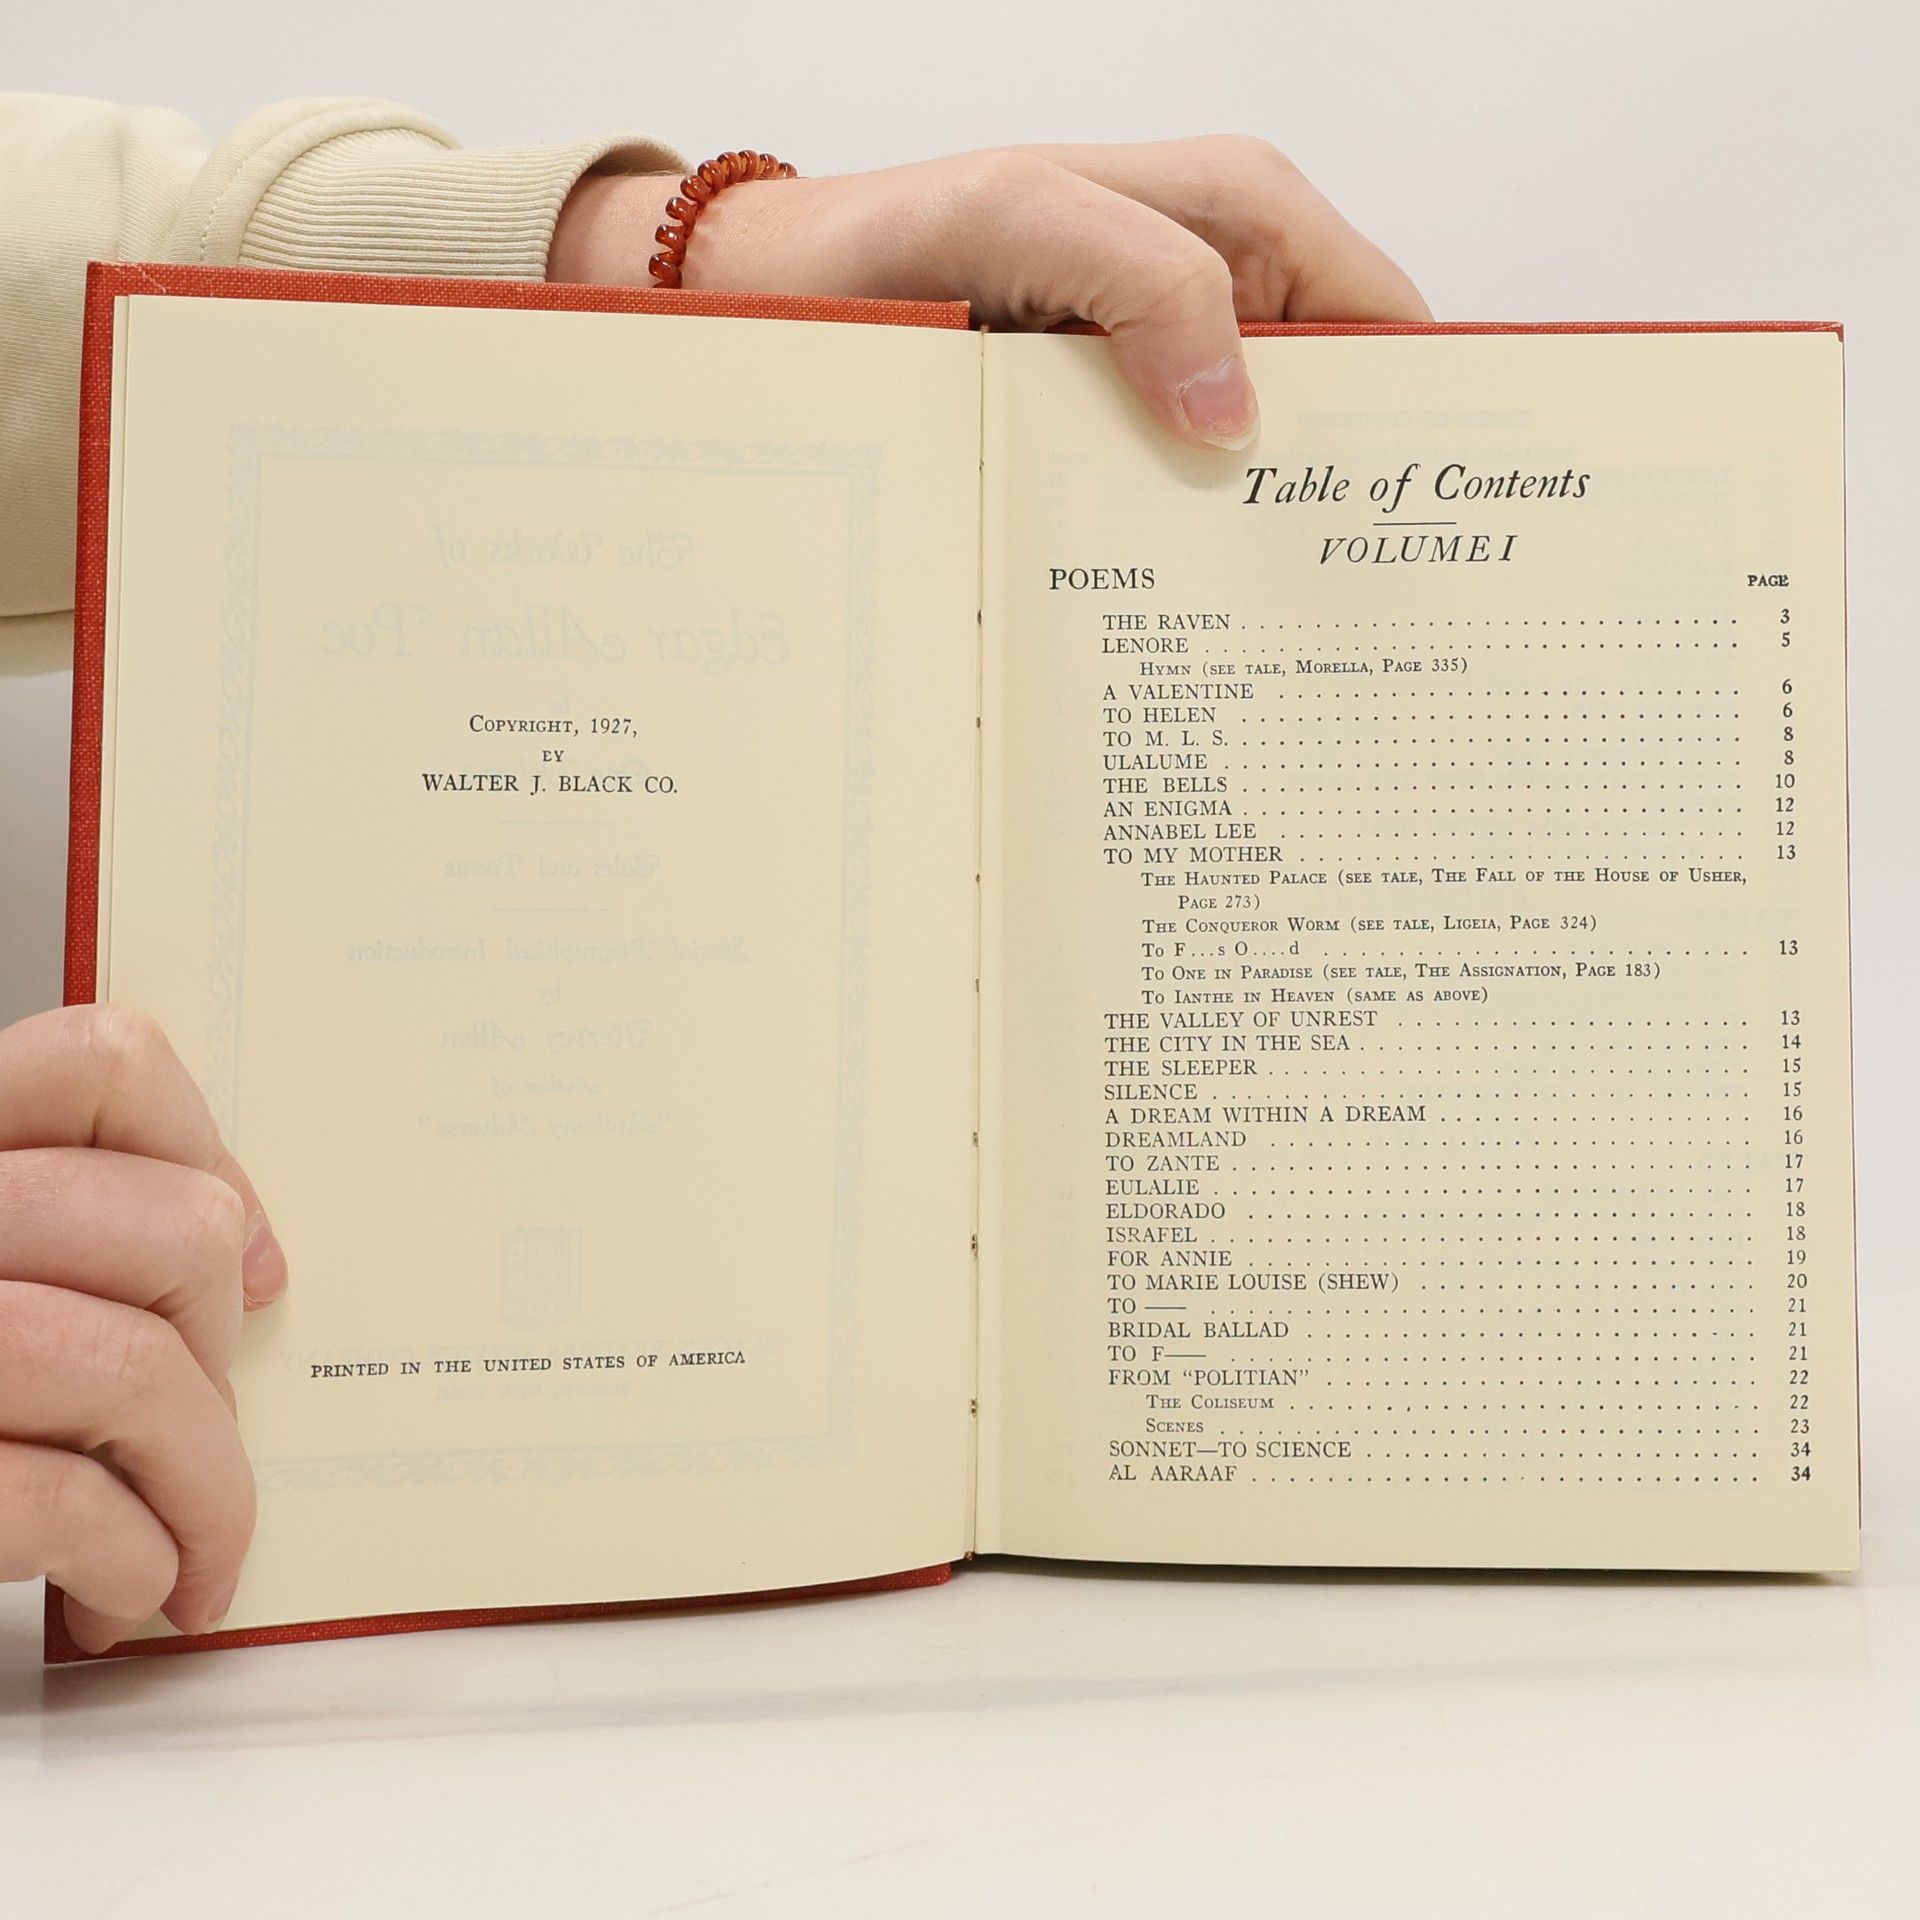 COPYRIGHT, 1927,
BY
WALTER J. BLACK CO.
PRINTED IN THE UNITED STATES OF AMERICA
Table of Contents
VOLUME I
POEMS PAGE
THE RAVEN 3
LENORE 5
HYMN (SEE TALE, MORELLA, PAGE 335)
A VALENTINE 6
TO HELEN 6
TO M. L. S. 8
ULALUME 8
THE BELLS 10
AN ENIGMA 12
ANNABEL LEE 12
TO MY MOTHER 13
THE HAUNTED PALACE (SEE TALE, THE FALL OF THE HOUSE OF USHER,
PAGE 273)
THE CONQUEROR WORM (SEE TALE, LIGEIA, PAGE 324)
TO F...s O....d 13
TO ONE IN PARADISE (SEE TALE, THE ASSIGNATION, PAGE 183)
TO IANTHE IN HEAVEN (SAME AS ABOVE)
THE VALLEY OF UNREST 13
THE CITY IN THE SEA 14
THE SLEEPER 15
SILENCE 15
A DREAM WITHIN A DREAM 16
DREAMLAND 16
TO ZANTE 17
EULALIE 17
ELDORADO 18
ISRAFEL 18
FOR ANNIE 19
TO MARIE LOUISE (SHEW) 20
TO —— 21
BRIDAL BALLAD 21
TO F—— 21
FROM "POLITIAN" 22
THE COLISEUM 22
SCENES 23
SONNET—TO SCIENCE 34
AL AARAAF 34